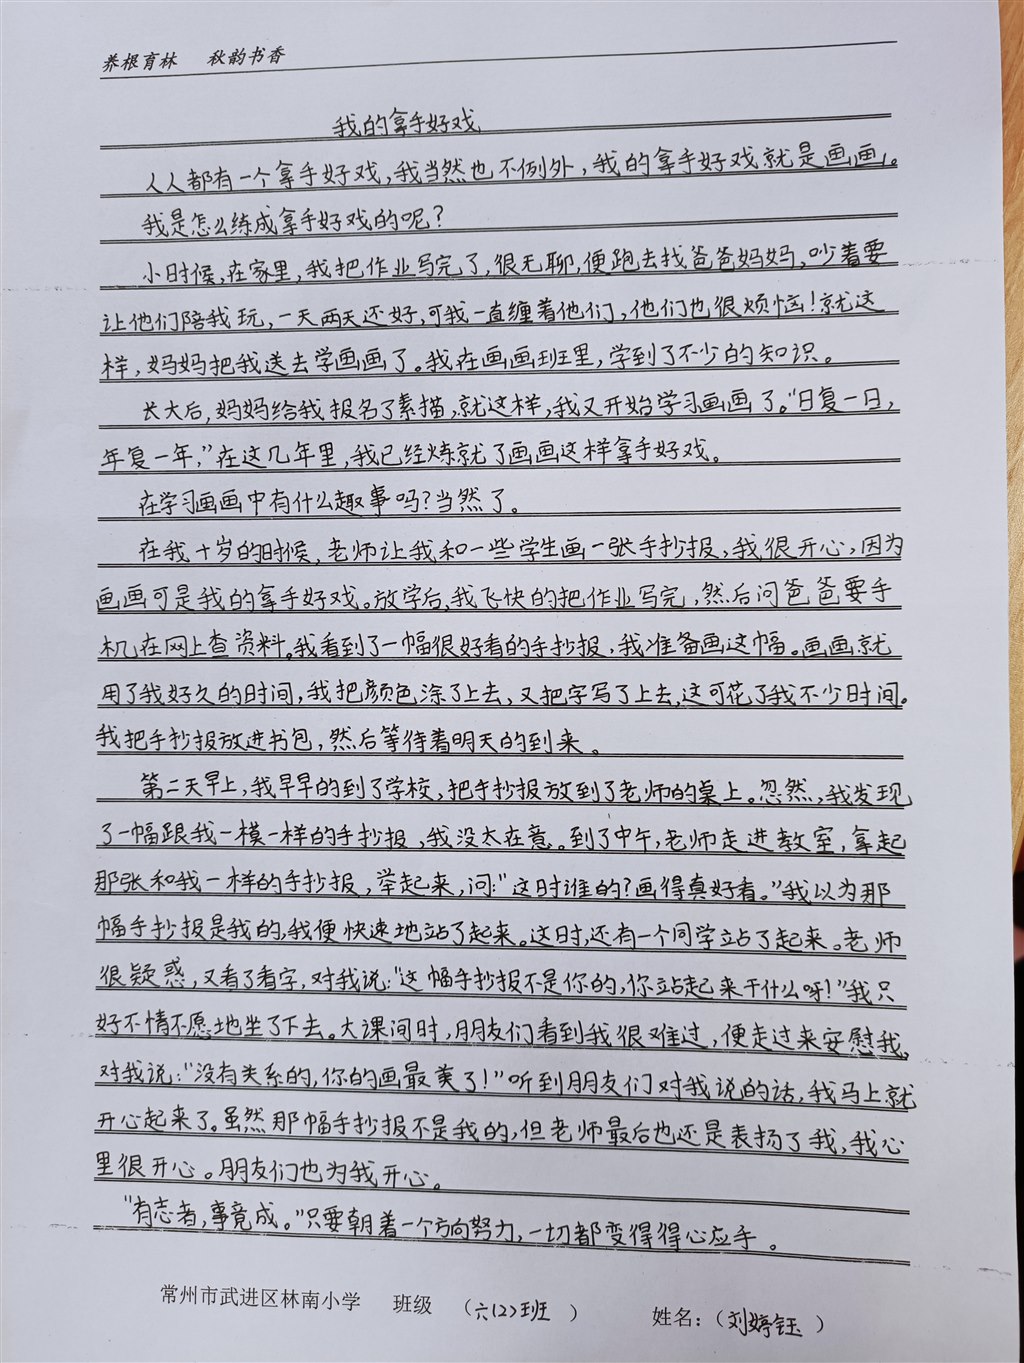 养根育林 秋韵书香
我的拿手好戏
人人都有一个拿手好戏,我当然也不例外,我的拿手好戏就是画画。
我是怎么练成拿手好戏的呢?
小时候,在家里,我把作业写完了,很无聊,便跑去找爸爸妈妈,吵着要
让他们陪我玩,一天两天还好,可我一直缠着他们,他们也很烦恼!就这
样,妈妈把我送去学画画了。我在画画班里,学到了不少的知识。
长大后,妈妈给我报名了素描,就这样,我又开始学习画画了。“日复一日,
年复一年,”在这几年里,我已经炼就了画画这样拿手好戏。
在学习画画中有什么趣事吗?当然了。
在我十岁的时候,老师让我和一些学生画一张手抄报,我很开心,因为
画画可是我的拿手好戏。放学后,我飞快的把作业写完,然后问爸爸要手
机在网上查资料。我看到了一幅很好看的手抄报,我准备画这幅。画画就
用了我好久的时间,我把颜色涂了上去,又把字写了上去,这可花了我不少时间。
我把手抄报放进书包,然后等待着明天的到来。
第二天早上,我早早的到了学校,把手抄报放到了老师的桌上。忽然,我发现
了一幅跟我一模一样的手抄报,我没太在意。到了中午,老师走进教室,拿起
那张和我一样的手抄报,举起来,问:“这时谁的?画得真好看。”我以为那
幅手抄报是我的,我便快速地站了起来。这时,还有一个同学站了起来。老师
很疑惑,又看了看字,对我说:“这幅手抄报不是你的,你站起来干什么呀!”我只
好不情不愿地坐了下去。大课间时,朋友们看到我很难过,便走过来安慰我,
对我说:“没有关系的,你的画最美了!”听到朋友们对我说的话,我马上就
开心起来了。虽然那幅手抄报不是我的,但老师最后也还是表扬了我,我心
里很开心。朋友们也为我开心。
“有志者,事竟成。”只要朝着一个方向努力,一切都变得得心应手。
常州市武进区林南小学 班级 (六(2)班) 姓名:(刘婷钰)